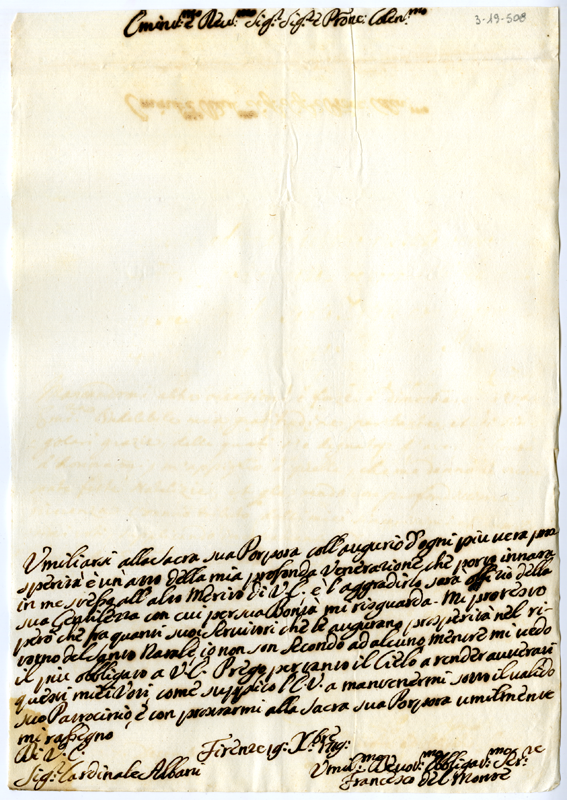 3-19-508
Emin:mo e Rev:mo Sig:r Sig:r e Prone: Colen:mo
Umiliarsi alla sacra sua Porpora coll'augurio d'ogni più vera pro
sperità è un atto della mia profonda Venerazione che porto innata
in me stesso all'alto Merito di V.E. è l'aggradirlo sarà della
sua Gentilezza con cui per sua Bontà mi risguarda. Mi protesto
però che fra quanti suoi Servitori che le augurano prosperità nel ri-
torno del Santo Natale io non son secondo ad alcuno mentre mi vedo
il più obbligato a V.E. Prego per tanto il Cielo a render avverati
questi miei Voti come supplico l'E.V. a mantenermi sotto il valido
suo Patrocinio e con prostrarmi alla Sacra sua Porpora umilmente
mi rassegno
Di V.E. Firenze 19: Xbre
Sig:r Cardinale Albani Umil:mo Devot:mo Obbligat:mo Ser:re
Francesco del Monte